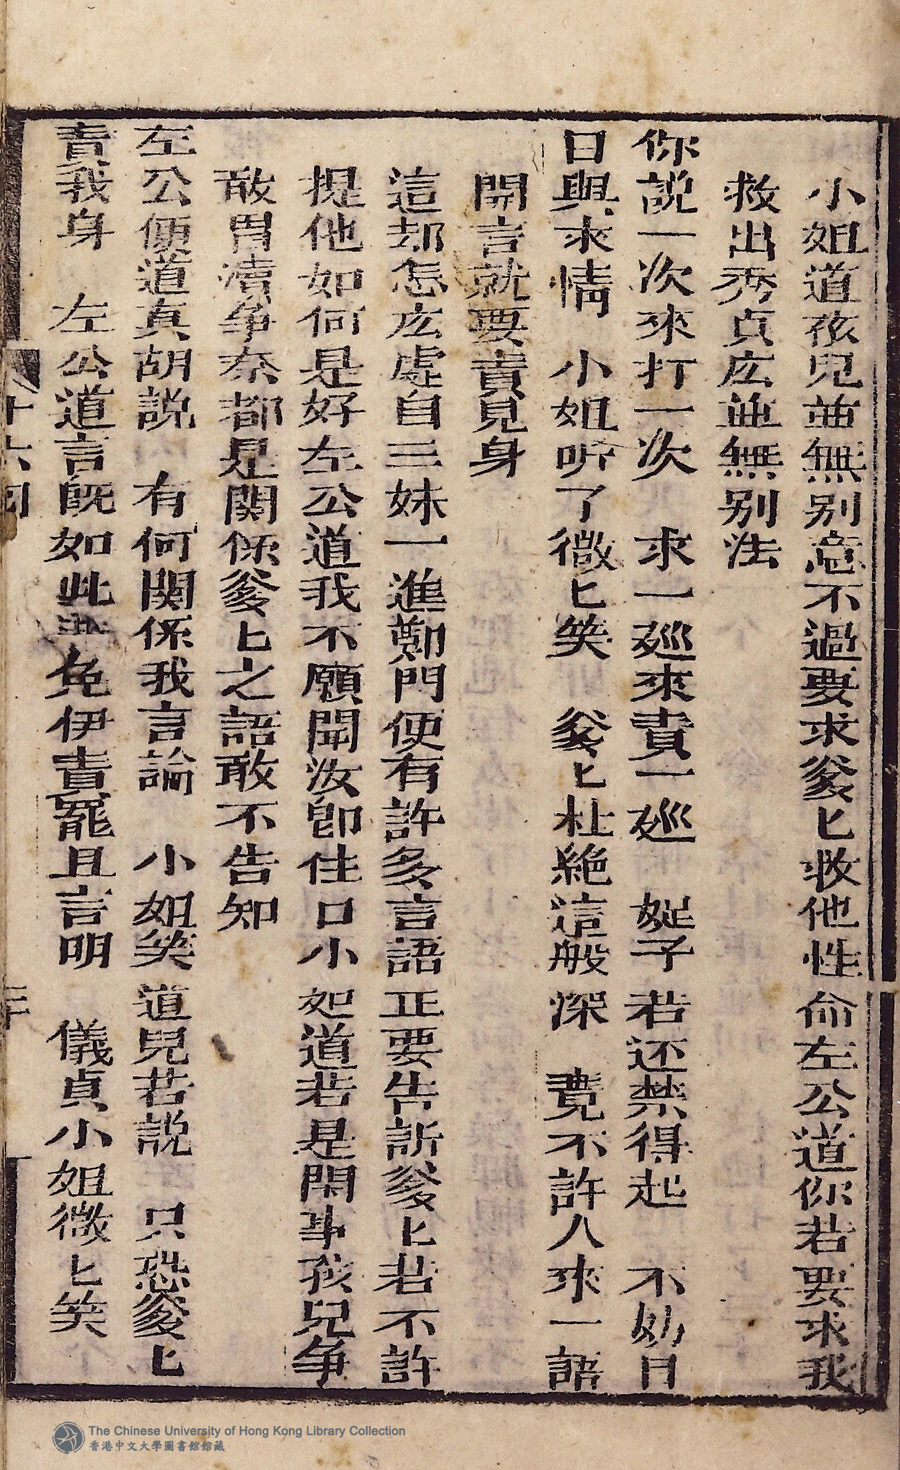 小姐道孩児並無别意不過要求爹匕救他性命左公道你若要求我
救出秀貞庅並無别法
你説一次來打一次 求一廵來責一廵 娫子若还禁得起 不妨日
日與求情 小姐听了微匕笑 爹匕杜絶這般深 竟不許人來一語
開言就要責児身
這却怎庅處自三妹一進鄭門便有許多言語正要告訴爹匕若不許
提他如何是好左公道我不願聞汝卽住口小姐道若是閑事孩兒争
敢冒瀆争奈都是関係爹匕之語敢不告知
左公便道真胡説 有何関係我言論 小姐笑道児若説 只恐爹匕
責我身 左公道言既如此 免伊責罷且言明 儀貞小姐微匕笑
十六囬
The Chinese University of Hong Kong Library Collection
香港中文大學圖書館館藏